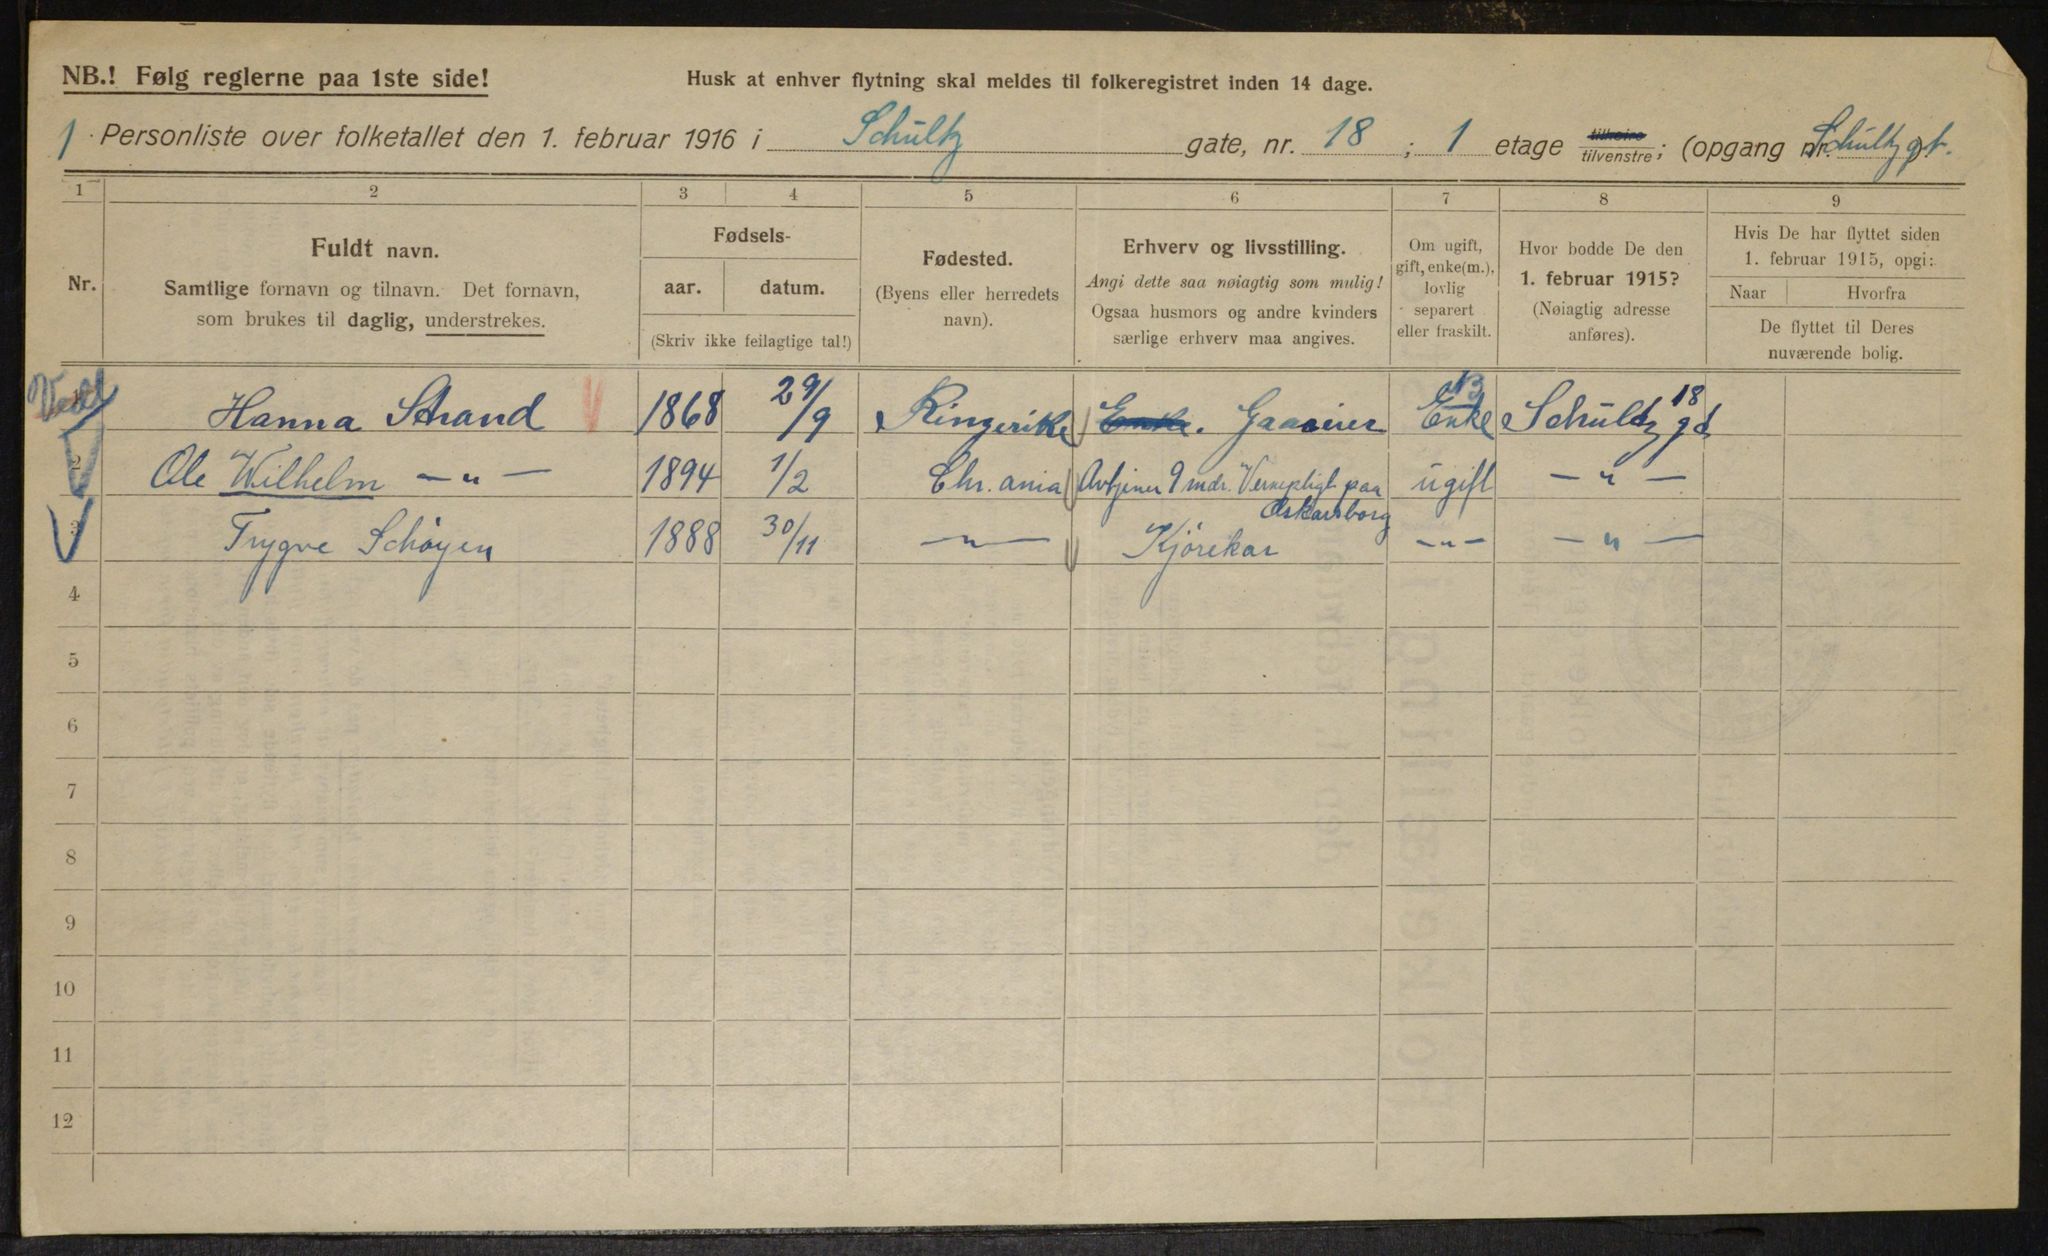 NB.! Følg reglerne paa 1ste side!
Husk at enhver flytning skal meldes til folkeregistret inden 14 dage.
1 Personliste over folketallet den 1. februar 1916 i Schultz gate, nr. 18 ; 1 etage tilhøire tilvenstre; (opgang nr. Schultzgt.
1 2 3 4 5 6 7 8 9
Nr.
Fuldt navn.
Samtlige fornavn og tilnavn. Det fornavn,
som brukes til daglig, understrekes.
Fødsels-
aar. datum.
(Skriv ikke feilagtige tal!)
Fødested.
(Byens eller herredets
navn).
Erhverv og livsstilling.
Angi dette saa nøiagtig som mulig!
Ogsaa husmors og andre kvinders
særlige erhverv maa angives.
Om ugift,
gift, enke(m.),
lovlig
separert
eller fraskilt.
Hvor bodde De den
1. februar 1915?
(Nøiagtig adresse
anføres).
Hvis De har flyttet siden
1. februar 1915, opgi:
Naar Hvorfra
De flyttet til Deres
nuværende bolig.
1 Hanna Strand 1868 29/9 Ringerike Enke. Enke Schultz gt 18
2 Ole Wilhelm — „ — 1894 1/2 Chr.ania 9 mdr. Vernepligt paa Oskarsborg ugift — „ —
3 Trygve Schøyen 1888 30/11 — „ — Kjørekar — „ — — „ —
4
5
6
7
8
9
10
11
12